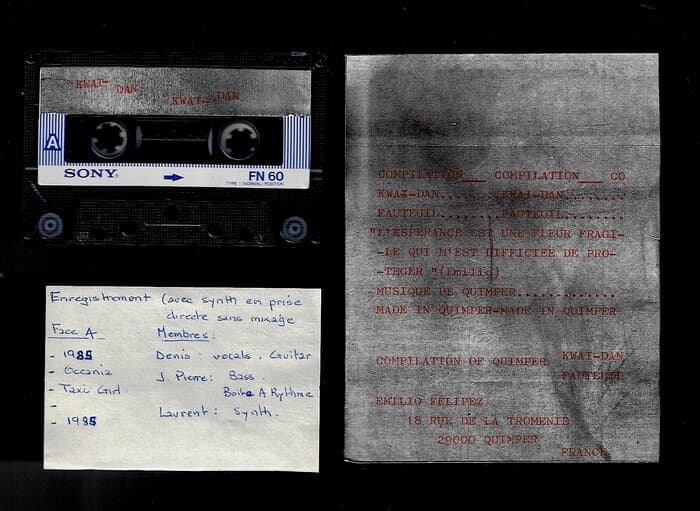 KWAÏ-
DAN
KWAÏ-DAN
A
SONY®
FN 60
TYPE I (NORMAL) POSITION
Enregistrement (avec synth en prise
directe sans mixage
Face A
Membres:
- 1985
Denis: vocals. Guitar
- Oceania
J. Pierre: Bass.
- Taxi Girl
Boite A Rythme
-
Laurent: Synth.
- 1985
COMPILATION___ COMPILATION___ CO
KWAÏ-DAN........KWAI-DAN........
FAUTEUIL........FAUTEUIL........
"L'ESPERANCE EST UNE FLEUR FRAGI-
-LE QUI M'EST DIFFICIEE DE PRO-
-TEGER "(Emilio)
MUSIQUE DE QUIMPER.............
MADE IN QUIMPER-MADE IN QUIMPER
KWAÏ-DAN
COMPILATION OF QUIMPER
FAUTEUIL
EMILIO FELIPEZ
18 RUE DE LA TROMENIE
29000 QUIMPER
FRANCE